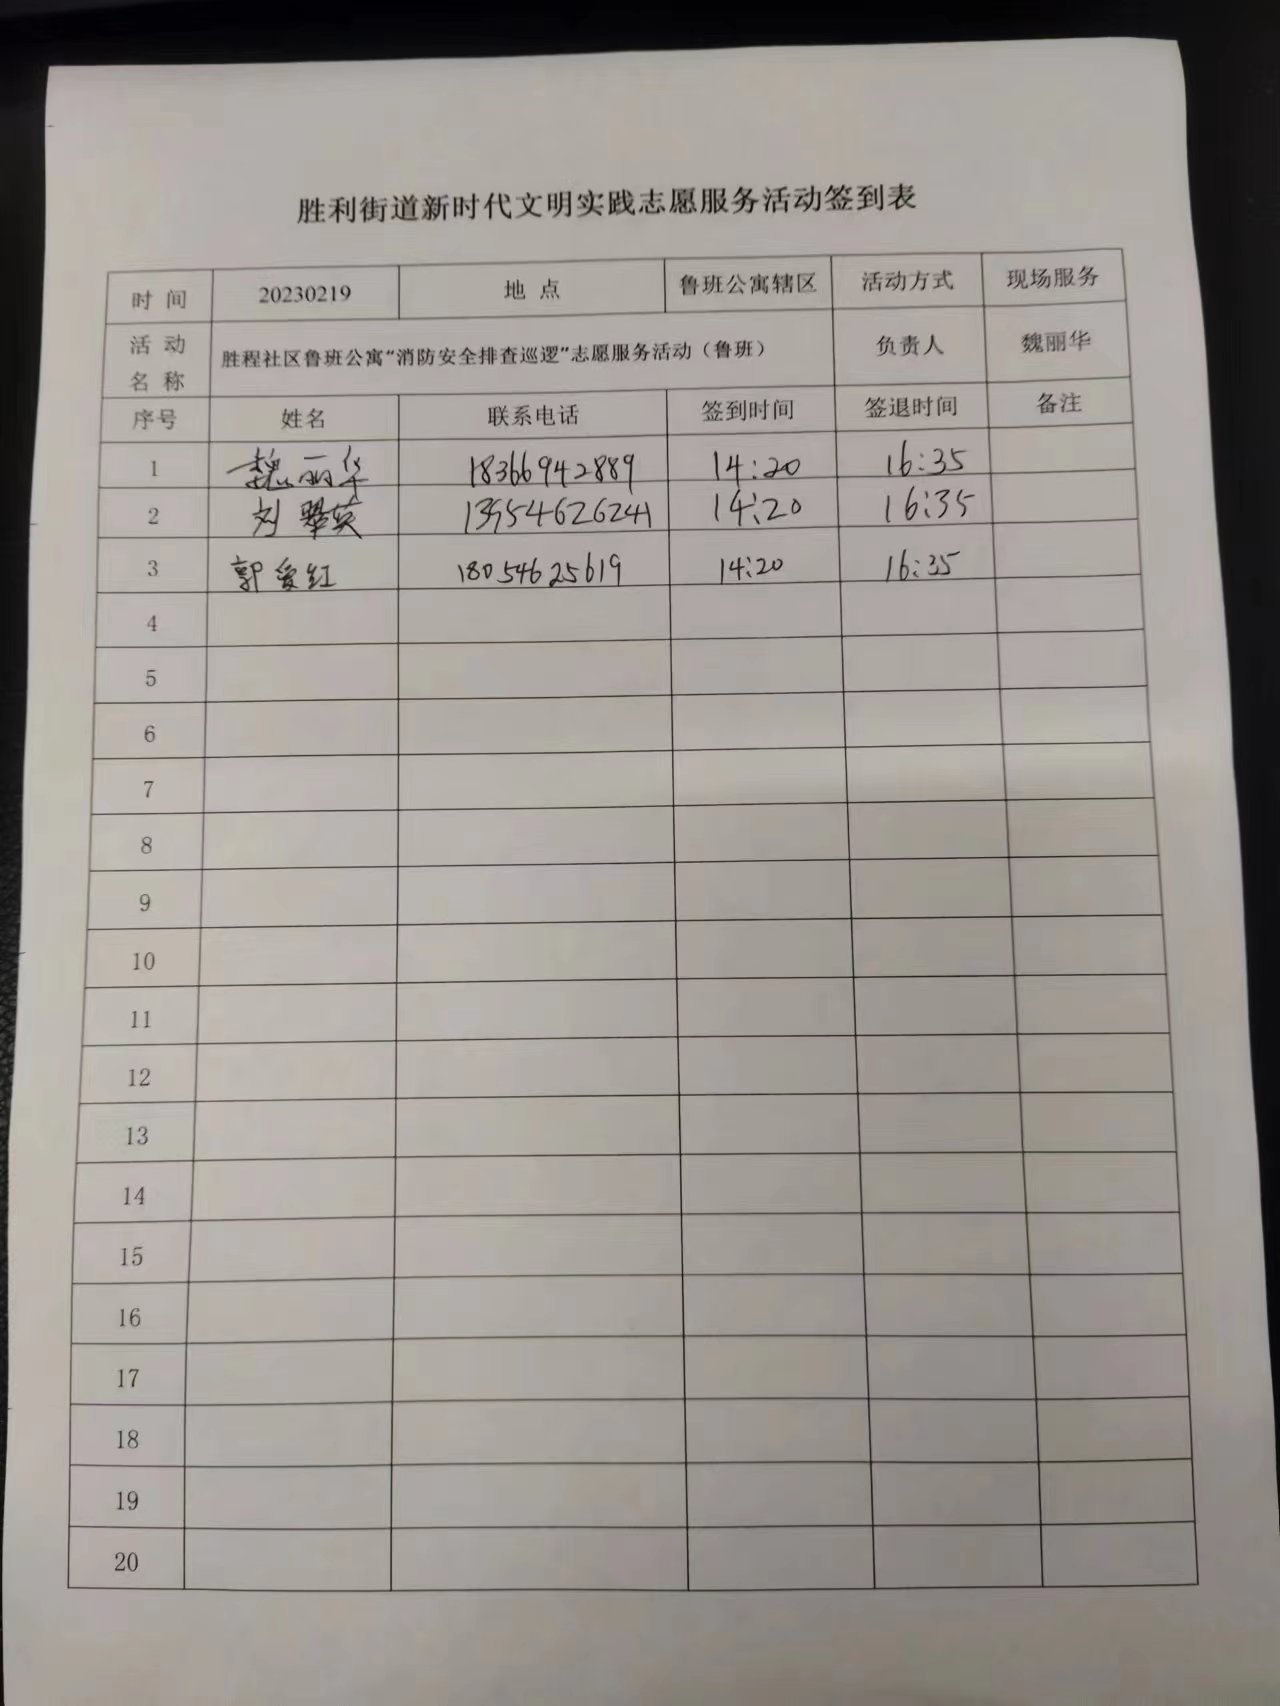 胜利街道新时代文明实践志愿服务活动签到表
时 间 20230219 地 点 鲁班公寓辖区 活动方式 现场服务
活 动 名 称 胜程社区鲁班公寓“消防安全排查巡逻”志愿服务活动（鲁班） 负责人 魏丽华
序号 姓名 联系电话 签到时间 签退时间 备注
1 魏丽华 18366942889 14:20 16:35
2 刘翠英 13954626241 14:20 16:35
3 郭爱红 18054625619 14:20 16:35
4
5
6
7
8
9
10
11
12
13
14
15
16
17
18
19
20